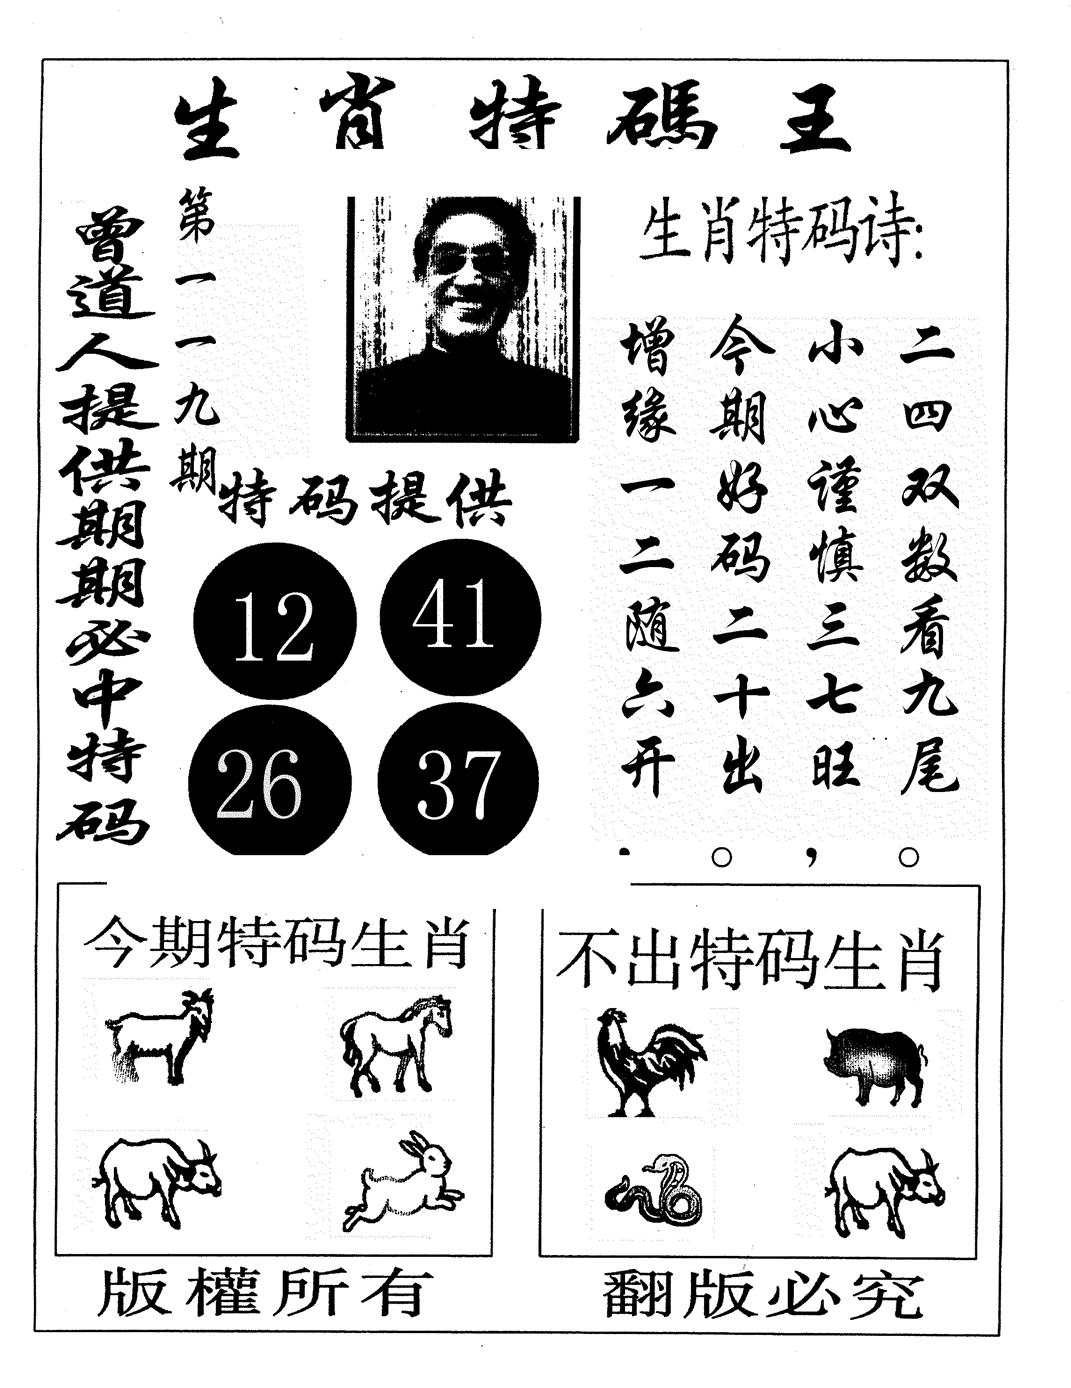 生肖特碼王
曾道人提供期期必中特码
第一一九期
特码提供
12
41
26
37
生肖特码诗:
二四双数看九尾。
小心谨慎三七旺,
今期好码二十出。
增缘一二随六开.
今期特码生肖
不出特码生肖
版權所有
翻版必究